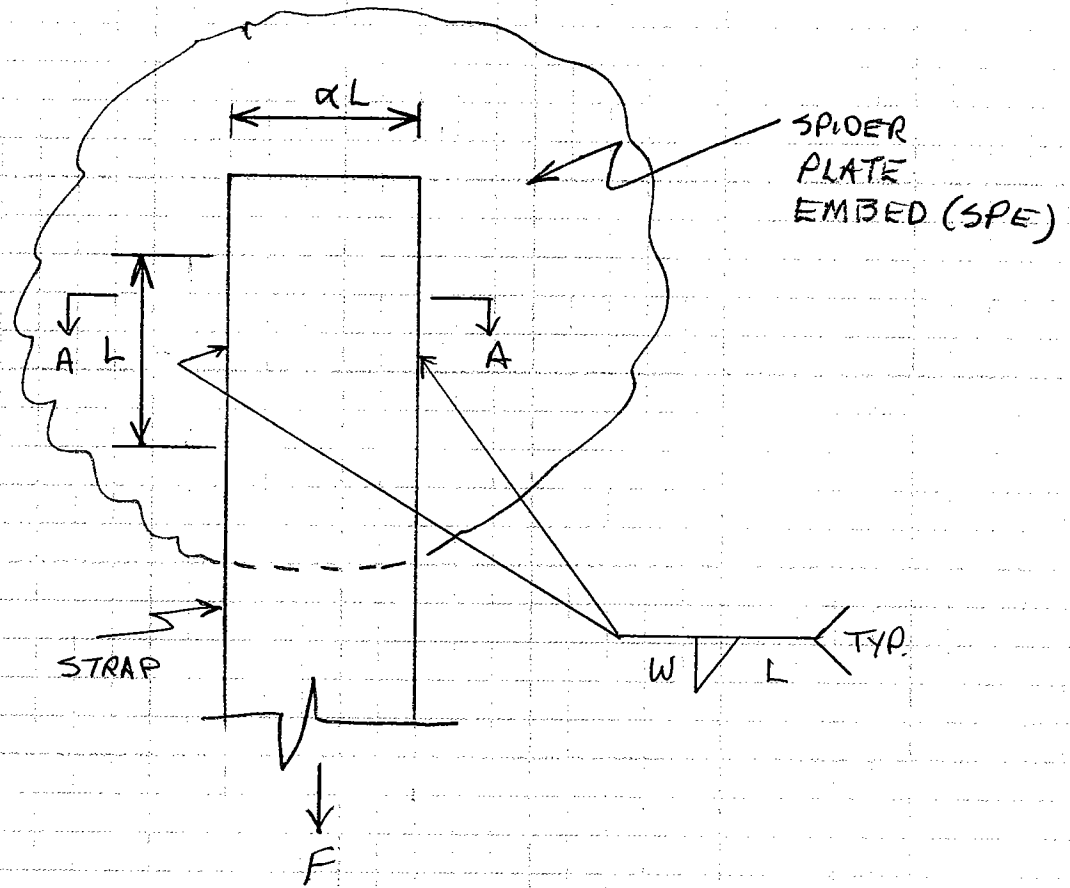 αL
SPIDER
PLATE
EMBED (SPE)
A
L
A
STRAP
W
L
TYP.
F